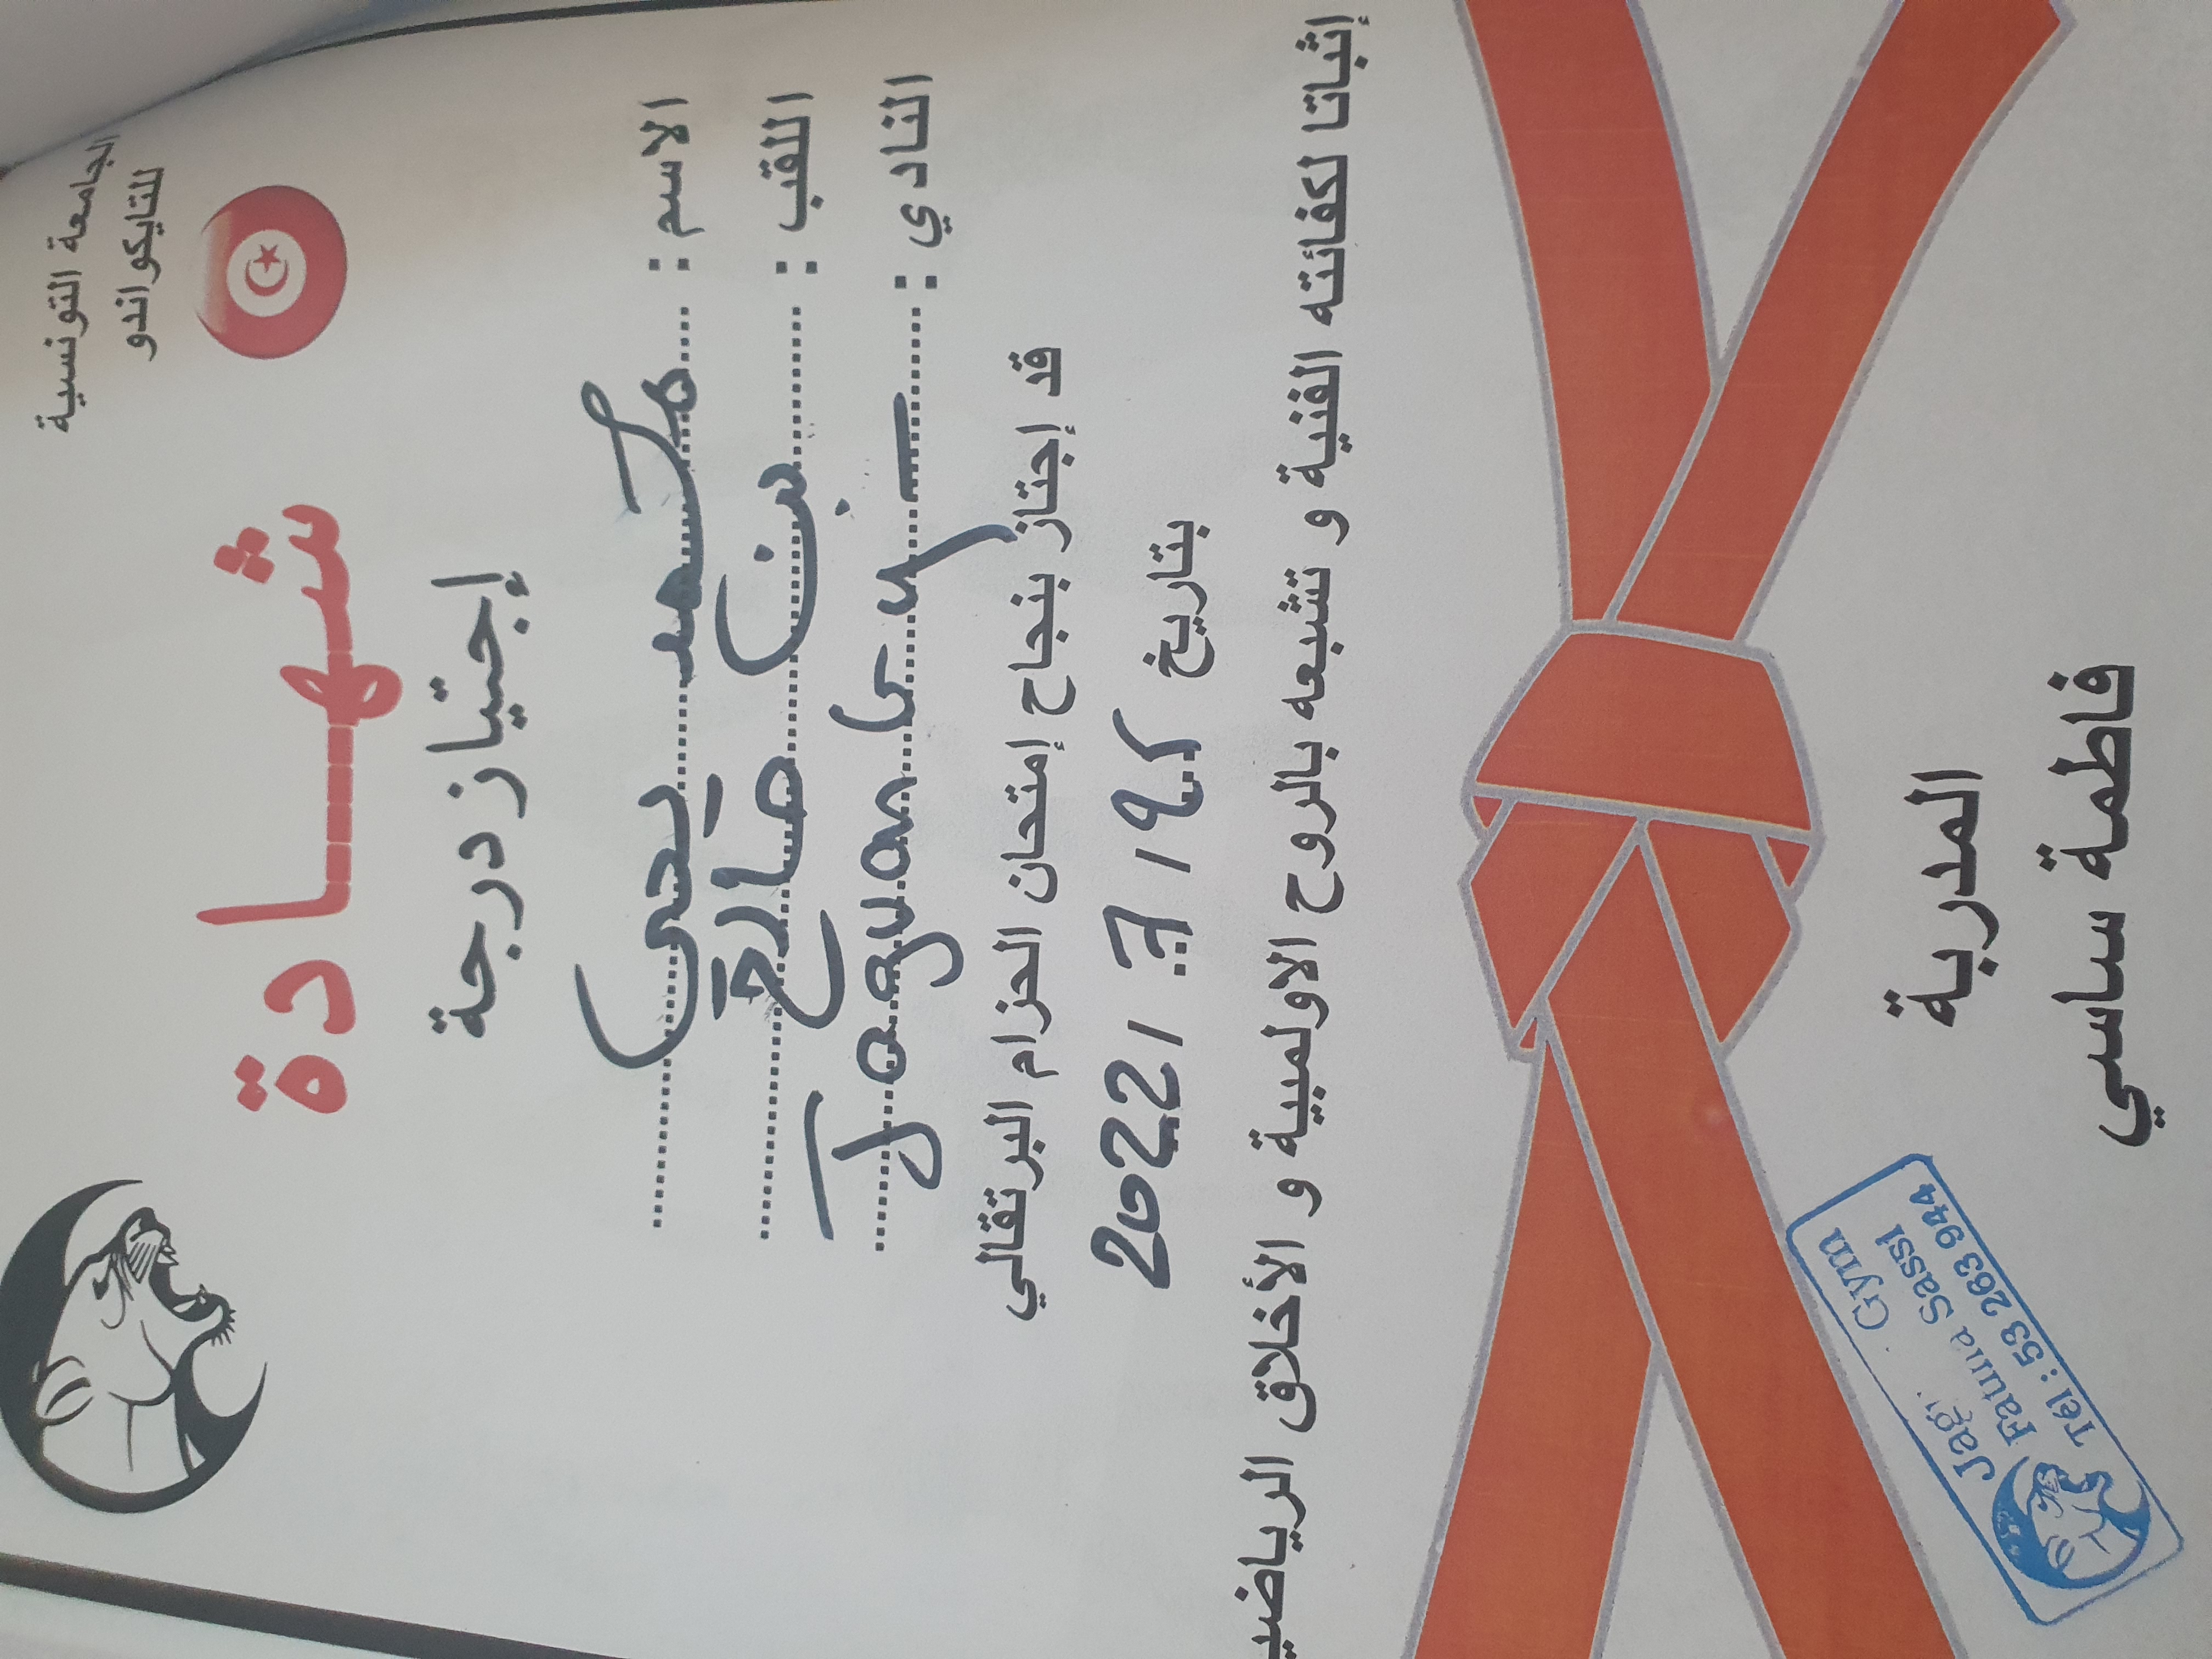 الجامعة التونسية
للتايكواندو
شهادة
إجتياز درجة
الاسم : محمد يحي
اللقب : بن صالح
النادي : Jaguar Gym
قد إجتاز بنجاح إمتحان الحزام البرتقالي
بتاريخ 19 / 7 / 2022
إثباتا لكفائته الفنية و تشبعه بالروح الاولمبية و الأخلاق الرياضي
المدربة
فاطمة ساسي
Gym
Fatma Sassi
Tél : 53 263 944